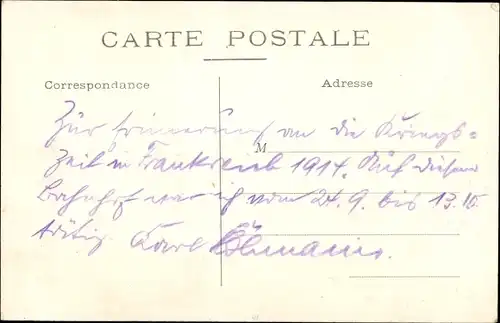 CARTE POSTALE
Correspondance
Adresse
M
Zur Erinnerung an die Kriegs-
zeit in Frankreich 1914. Auf diesem
Bahnhof war ich vom 24.9. bis 13.10.
tätig. Karl